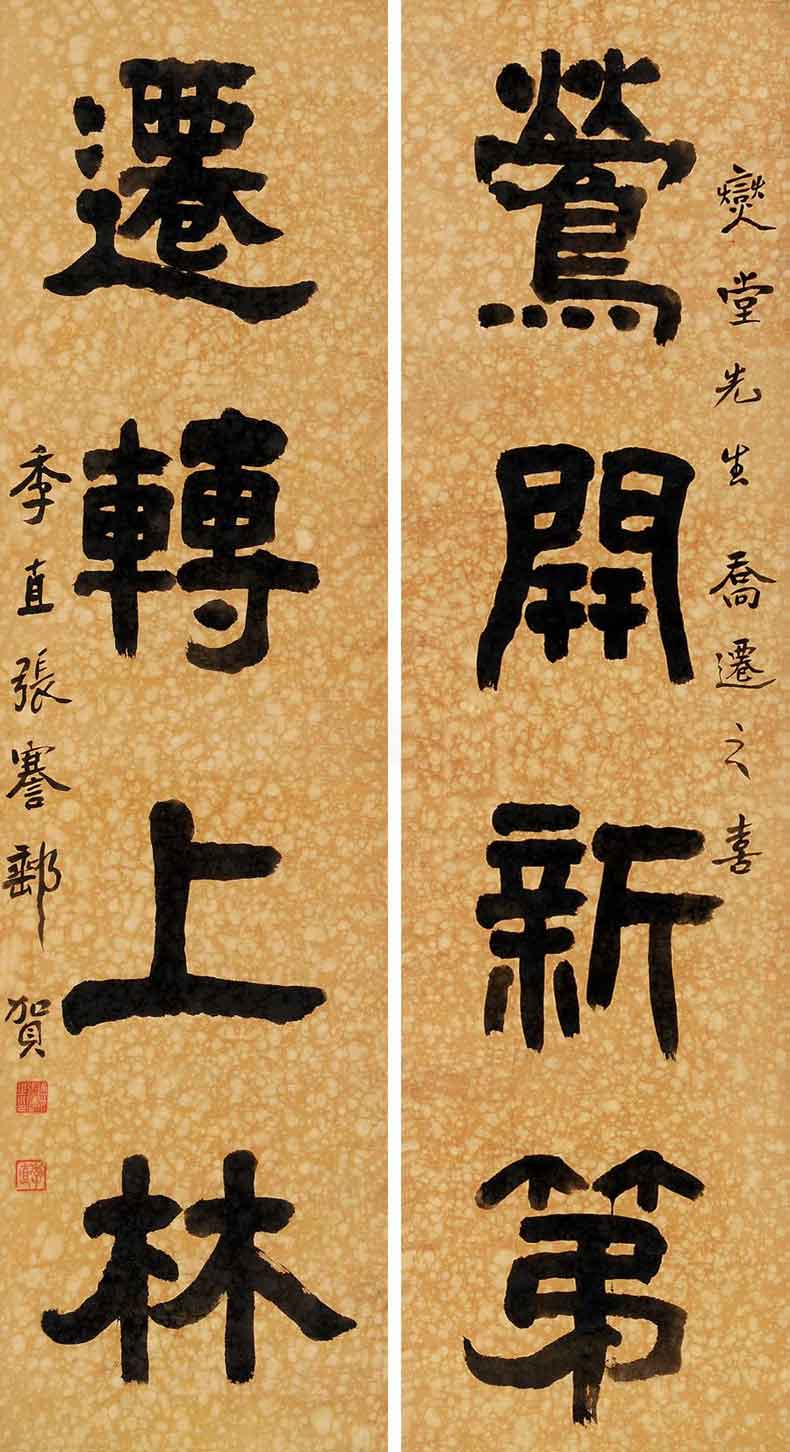 燮堂先生喬遷之喜
鶯開新第
遷轉上林
季直張謇郵賀